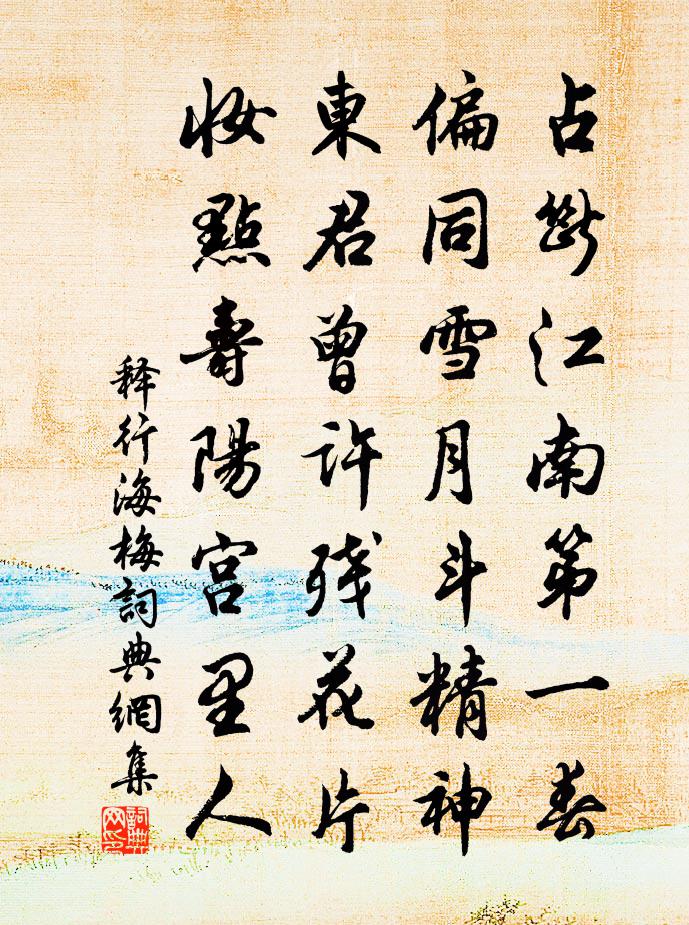 占斷江南第一春
偏同雪月斗精神
東君曾許残花片
妝點壽陽宮里人
释行海梅詞典網集
詞典网印